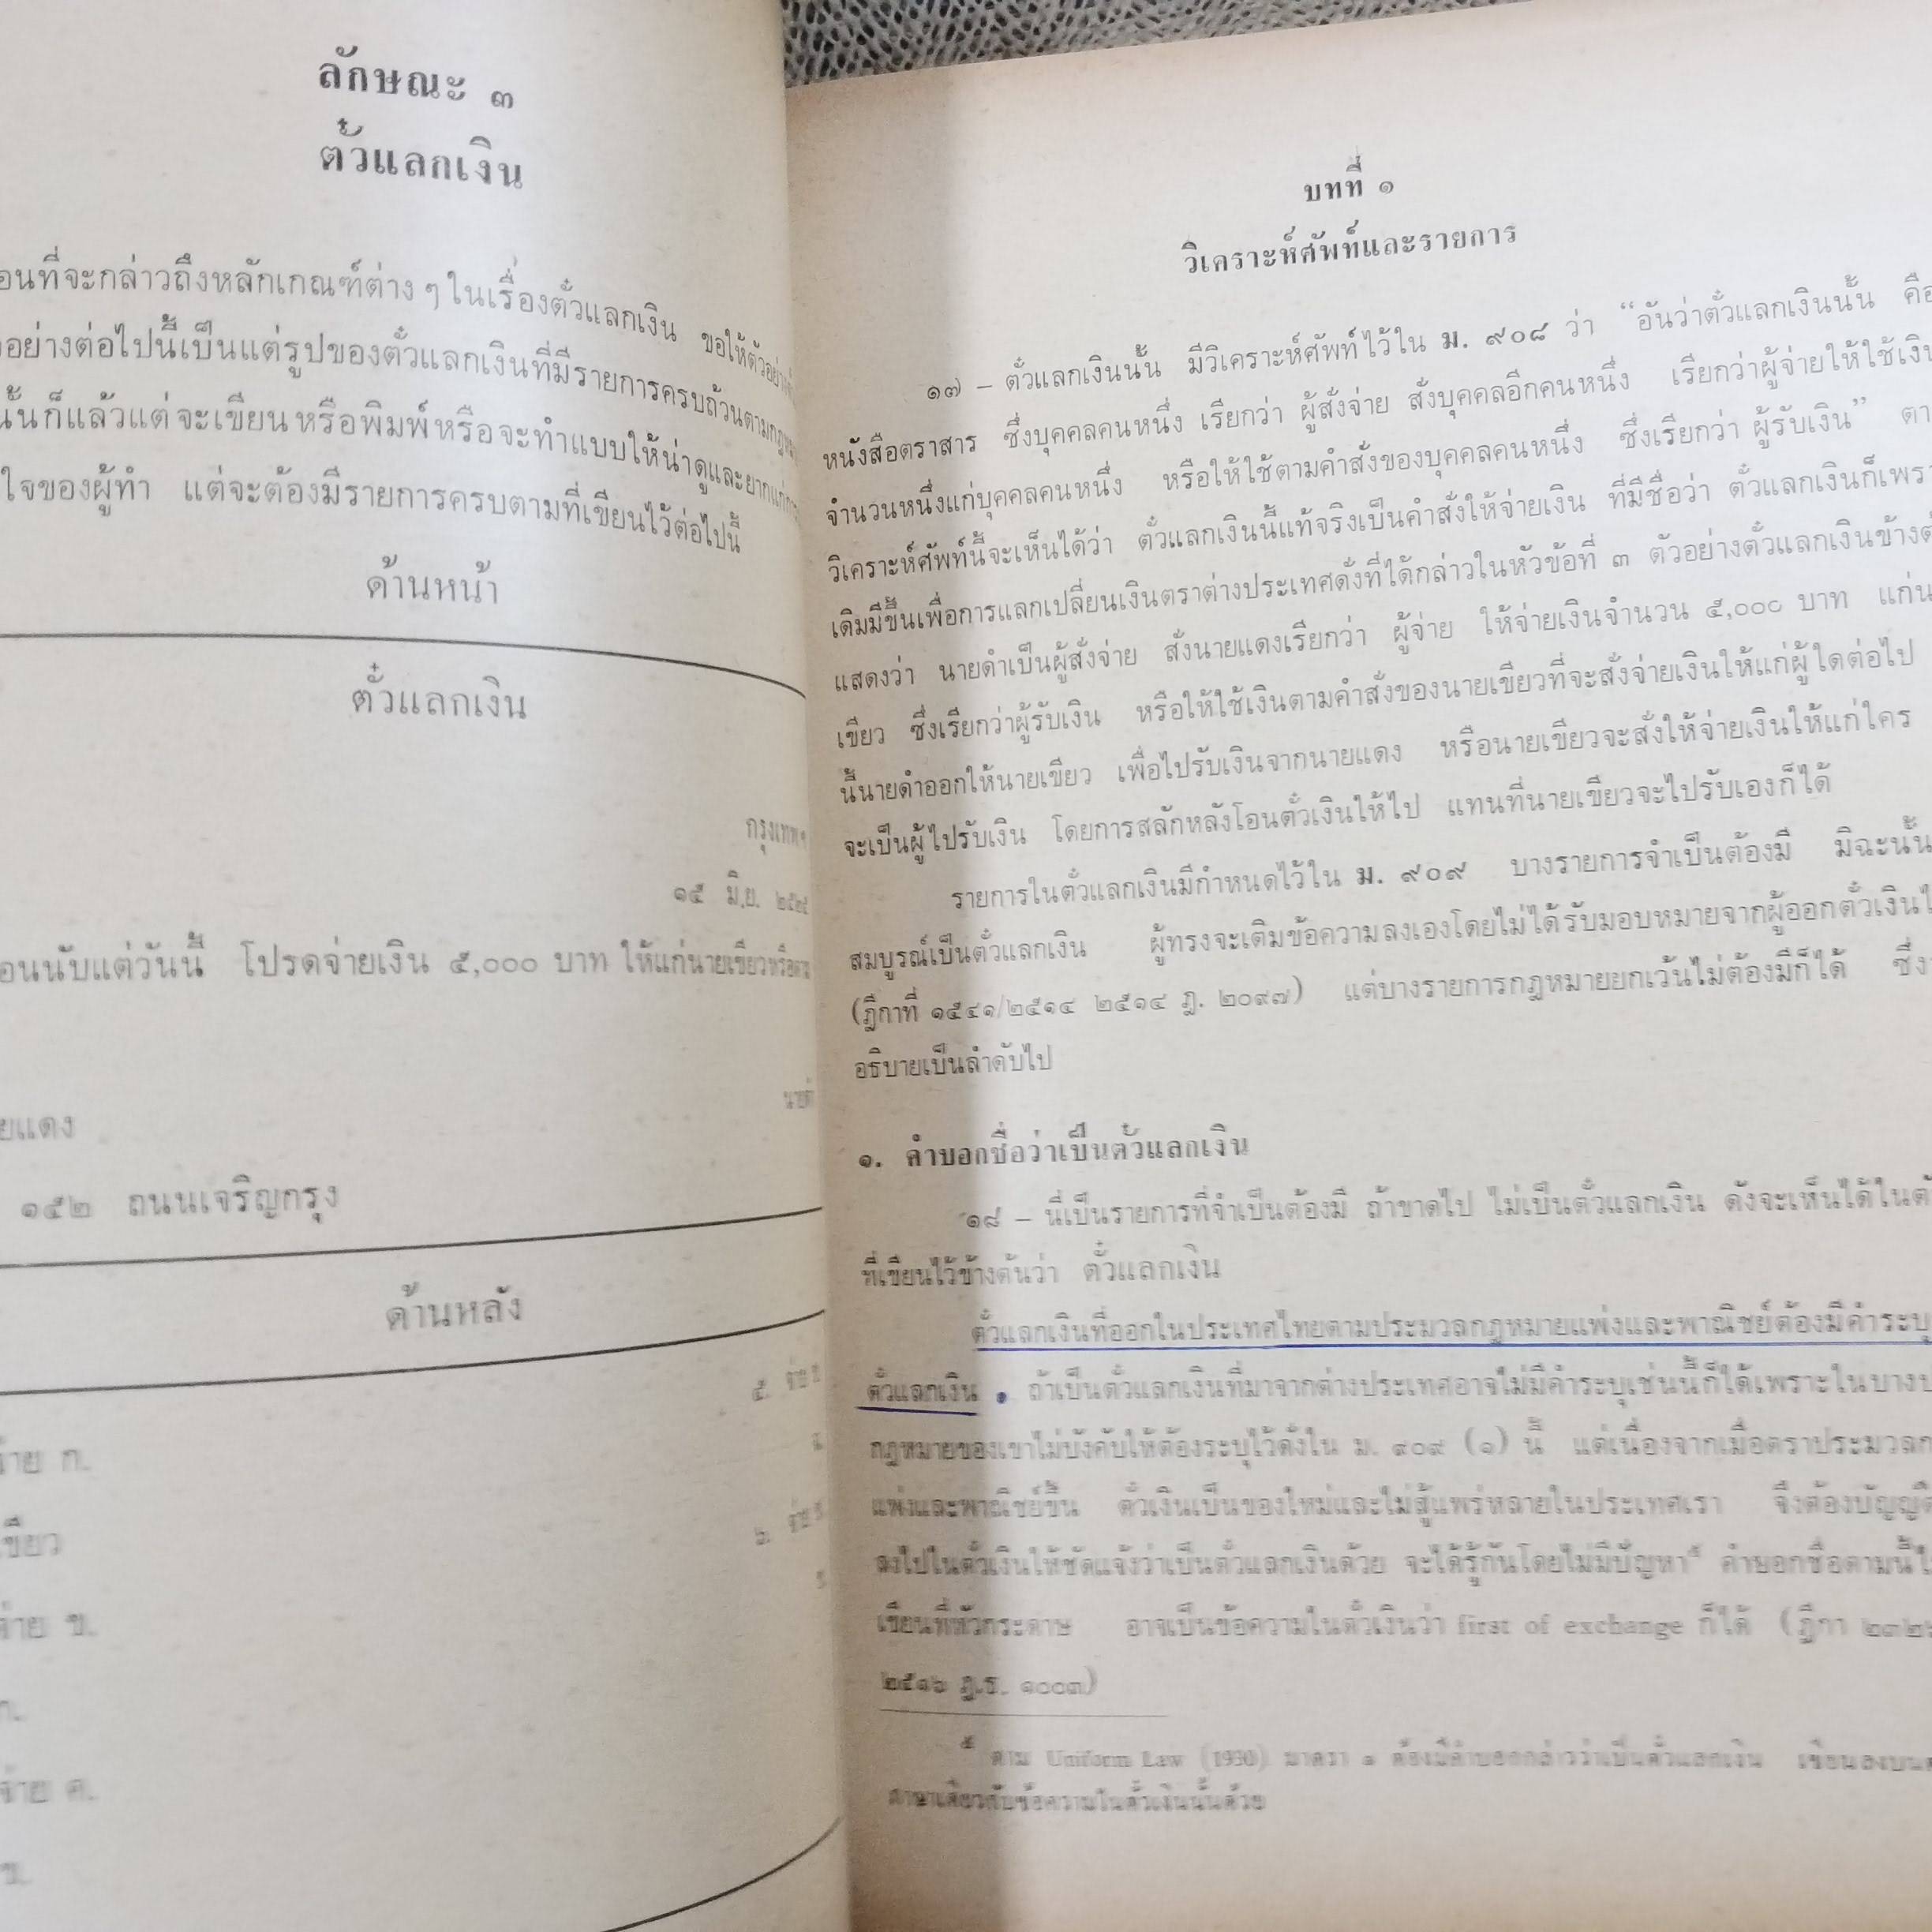 ลักษณะ ๓
ตั๋วแลกเงิน
อนที่จะกล่าวถึงหลักเกณฑ์ต่าง ๆ ในเรื่องตั๋วแลกเงิน ขอให้ตัวอย่าง
อย่างต่อไปนี้เป็นแต่รูปของตั๋วแลกเงินที่มีรายการครบถ้วนตามกฎหมาย
นั้นก็แล้วแต่จะเขียนหรือพิมพ์หรือจะทำแบบให้น่าดูและยากแก่การ
ใจของผู้ทำ แต่จะต้องมีรายการครบตามที่เขียนไว้ต่อไปนี้
ด้านหน้า
ตั๋วแลกเงิน
กรุงเทพฯ
๑๕ มิ.ย. ๒๕๒๕
อนนับแต่วันนี้ โปรดจ่ายเงิน ๕,๐๐๐ บาท ให้แก่นายเขียวหรือตาม
ยแดง
๑๕๒ ถนนเจริญกรุง
ด้านหลัง
๕. จ่าย
จ่าย ก.
เขียว
๖. จ่าย
จ่าย ข.
ก.
จ่าย ค.
ข.
บทที่ ๑
วิเคราะห์ศัพท์และรายการ
๑๗ – ตั๋วแลกเงินนั้น มีวิเคราะห์ศัพท์ไว้ใน ม. ๙๐๘ ว่า “อันว่าตั๋วแลกเงินนั้น คือ
หนังสือตราสาร ซึ่งบุคคลคนหนึ่ง เรียกว่า ผู้สั่งจ่าย สั่งบุคคลอีกคนหนึ่ง เรียกว่าผู้จ่ายให้ใช้เงิน
จำนวนหนึ่งแก่บุคคลคนหนึ่ง หรือให้ใช้ตามคำสั่งของบุคคลคนหนึ่ง ซึ่งเรียกว่า ผู้รับเงิน” ตาม
วิเคราะห์ศัพท์นี้จะเห็นได้ว่า ตั๋วแลกเงินนี้แท้จริงเป็นคำสั่งให้จ่ายเงิน ที่มีชื่อว่า ตั๋วแลกเงินก็เพราะ
เดิมมีขึ้นเพื่อการแลกเปลี่ยนเงินตราต่างประเทศดังที่ได้กล่าวในหัวข้อที่ ๓ ตัวอย่างตั๋วแลกเงินข้างต้น
แสดงว่า นายดำเป็นผู้สั่งจ่าย สั่งนายแดงเรียกว่า ผู้จ่าย ให้จ่ายเงินจำนวน ๕,๐๐๐ บาท แก่น
เขียว ซึ่งเรียกว่าผู้รับเงิน หรือให้ใช้เงินตามคำสั่งของนายเขียวที่จะสั่งจ่ายเงินให้แก่ผู้ใดต่อไป
นี้นายดำออกให้นายเขียว เพื่อไปรับเงินจากนายแดง หรือนายเขียวจะสั่งให้จ่ายเงินให้แก่ใคร
จะเป็นผู้ไปรับเงิน โดยการสลักหลังโอนตั๋วเงินให้ไป แทนที่นายเขียวจะไปรับเองก็ได้
รายการในตั๋วแลกเงินมีกำหนดไว้ใน ม. ๙๐๙ บางรายการจำเป็นต้องมี มิฉะนั้น
สมบูรณ์เป็นตั๋วแลกเงิน ผู้ทรงจะเติมข้อความลงเองโดยไม่ได้รับมอบหมายจากผู้ออกตั๋วเงินไ
(ฎีกาที่ ๑๕๔๑/๒๕๑๔ ๒๕๑๔ ฎ. ๒๐๙๗) แต่บางรายการกฎหมายยกเว้นไม่ต้องมีก็ได้ ซึ่ง
อธิบายเป็นลำดับไป
๑. คำบอกชื่อว่าเป็นตั๋วแลกเงิน
๑๘ – นี่เป็นรายการที่จำเป็นต้องมี ถ้าขาดไป ไม่เป็นตั๋วแลกเงิน ดังจะเห็นได้ในตั
ที่เขียนไว้ข้างต้นว่า ตั๋วแลกเงิน
ตั๋วแลกเงินที่ออกในประเทศไทยตามประมวลกฎหมายแพ่งและพาณิชย์ต้องมีคำระบุ
ตั๋วแลกเงิน ถ้าเป็นตั๋วแลกเงินที่มาจากต่างประเทศอาจไม่มีคำระบุเช่นนี้ก็ได้เพราะในบางป
กฎหมายของเขาไม่บังคับให้ต้องระบุไว้ดังใน ม. ๙๐๙ (๑) นี้ แต่เนื่องจากเมื่อตราประมวลก
แพ่งและพาณิชย์ขึ้น ตั๋วเงินเป็นของใหม่และไม่สู้แพร่หลายในประเทศเรา จึงต้องบัญญัติ
ลงไปในตั๋วเงินให้ชัดแจ้งว่าเป็นตั๋วแลกเงินด้วย จะได้รู้กันโดยไม่มีปัญหา๕ คำบอกชื่อตามนี้ไ
เขียนที่หัวกระดาษ อาจเป็นข้อความในตั๋วเงินว่า first of exchange ก็ได้ (ฎีกา
๒๕๑๖ ฎ.ส. ๑๐๐๓)
๕ ตาม Uniform Law (1930) มาตรา ๑ ต้องมีคำบอกกล่าวว่าเป็นตั๋วแลกเงิน เขียนลงบน
ภาษาเดียวกับข้อความในตั๋วเงินนั้นด้วย